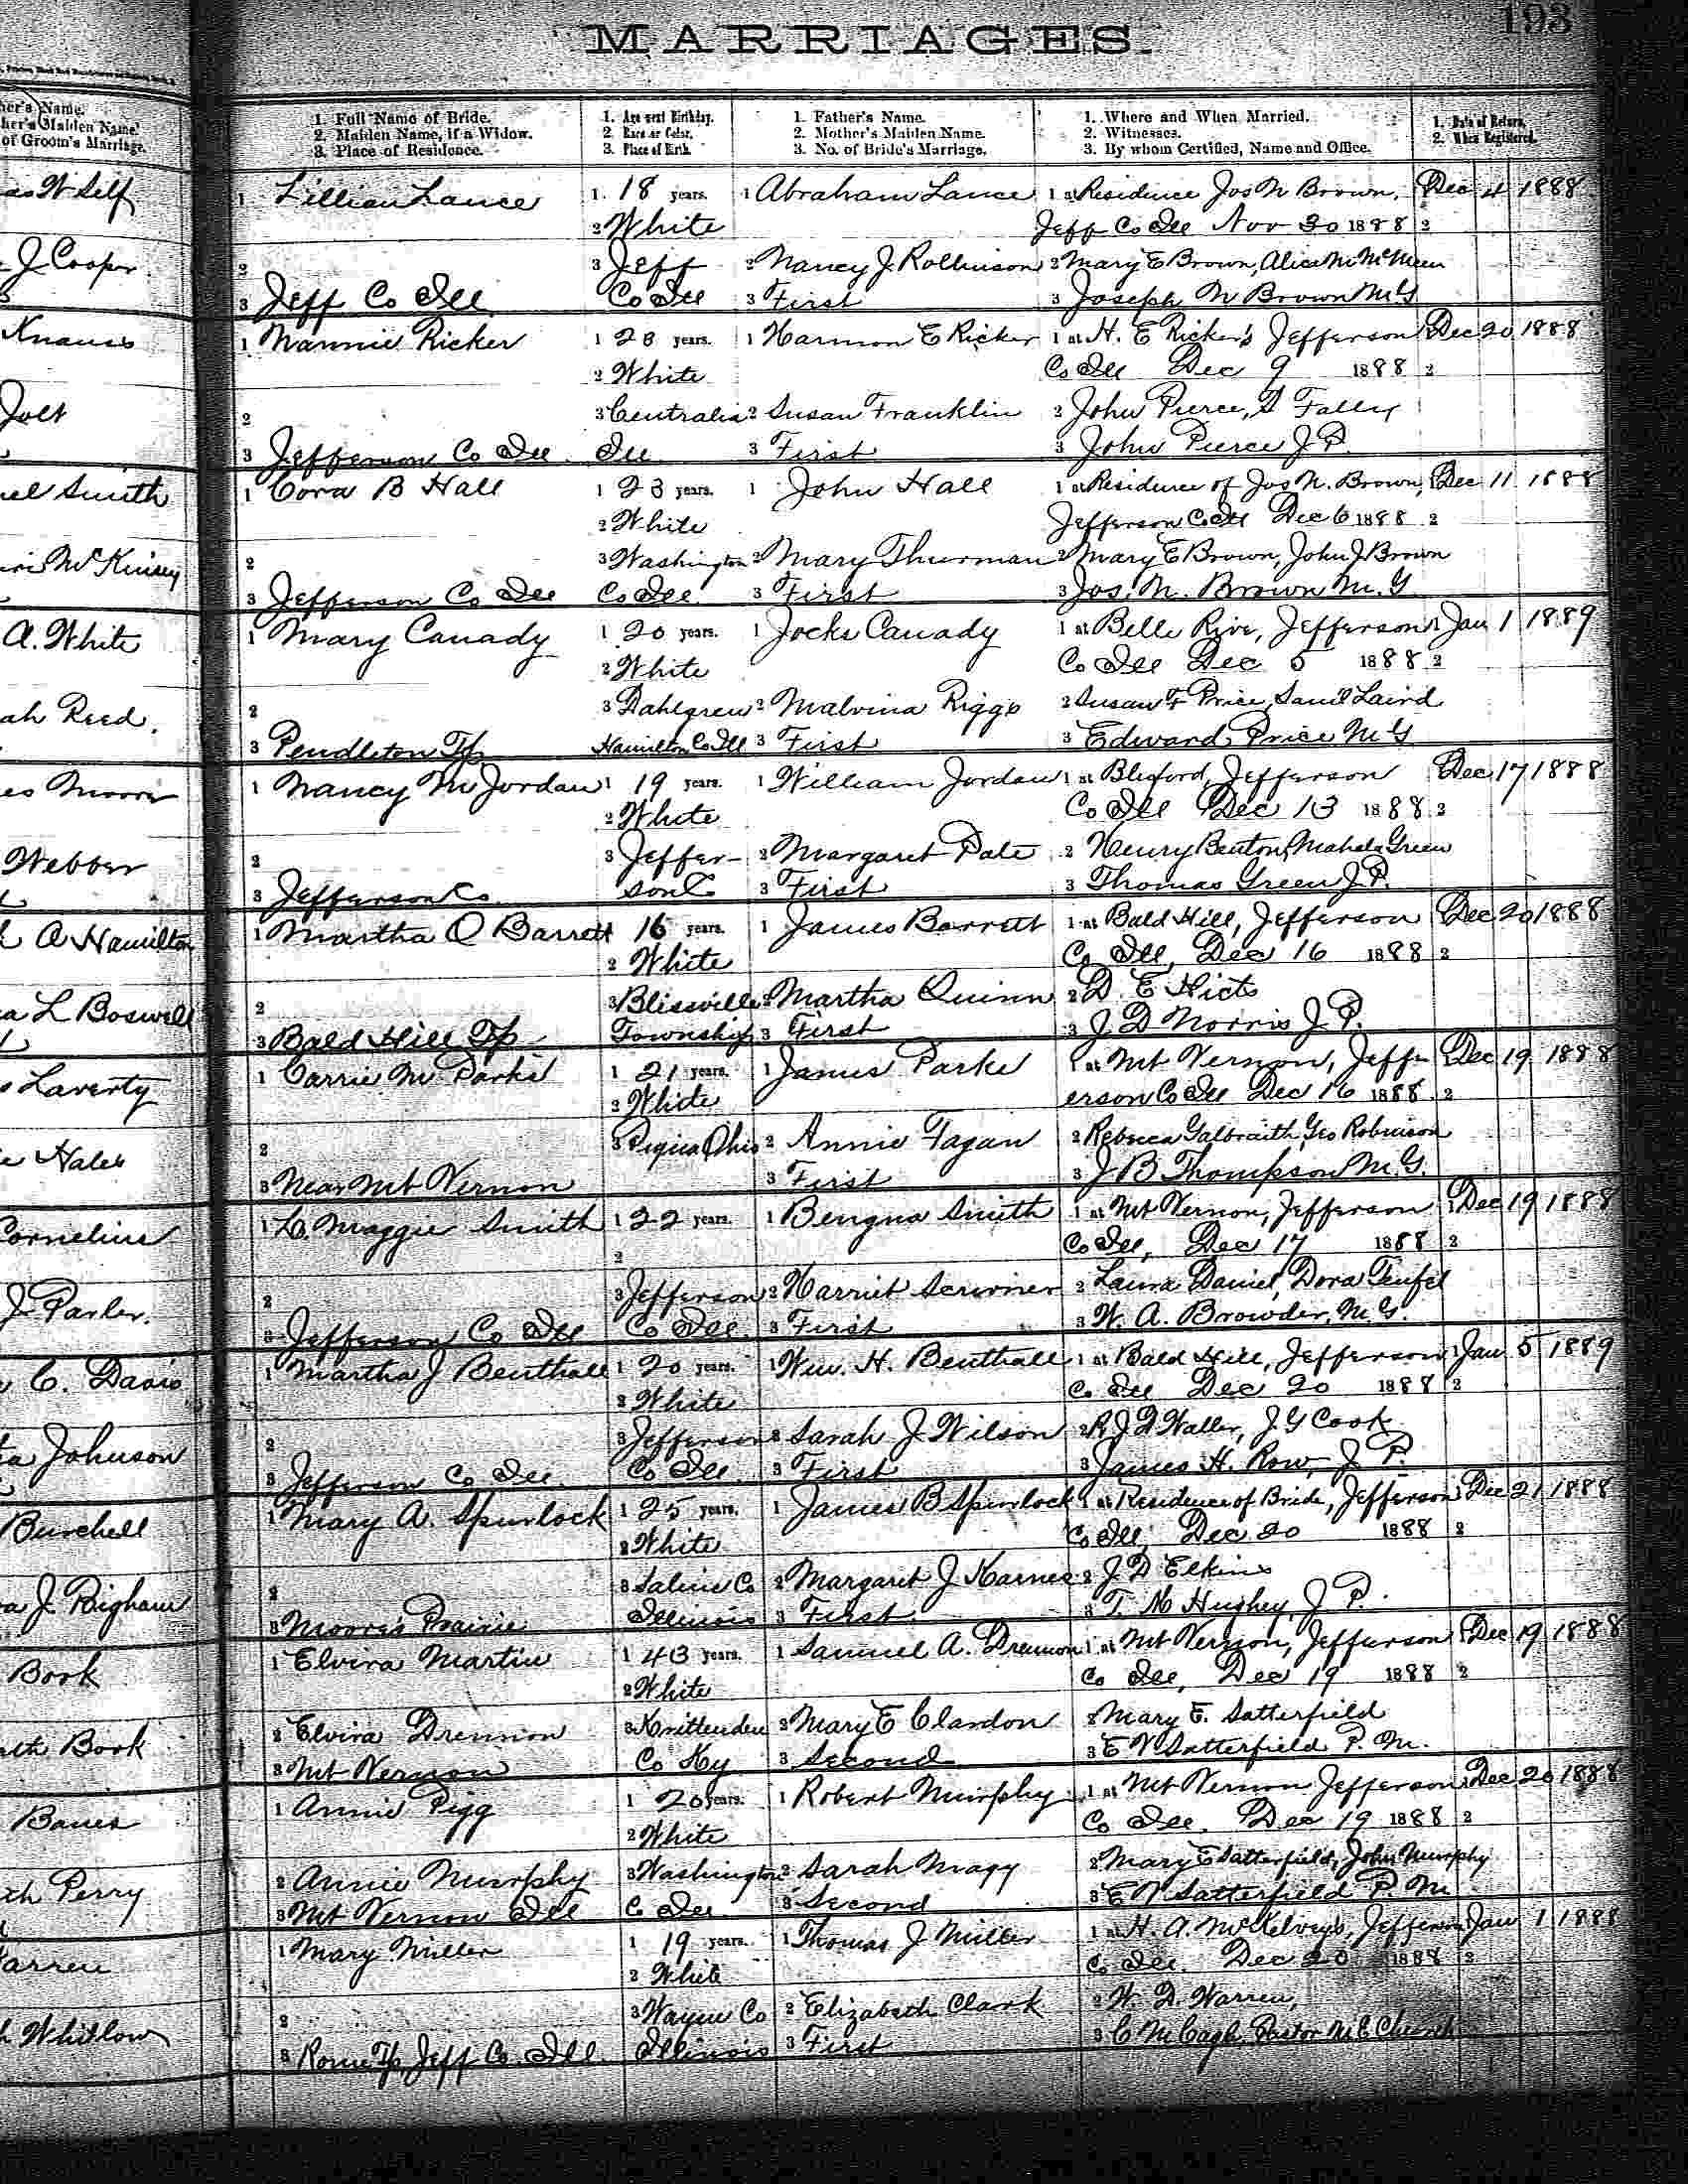 193
MARRIAGES.
her's Name.
her's Maiden Name.
of Groom's Marriage.
1. Full Name of Bride.
2. Maiden Name, if a Widow.
3. Place of Residence.
1. Age next Birthday.
2. Race or Color.
3. Place of Birth.
1. Father's Name.
2. Mother's Maiden Name.
3. No. of Bride's Marriage.
1. Where and When Married.
2. Witnesses.
3. By whom Certified, Name and Office.
1. Date of Return.
2. When Registered.
as W Self
1 Lillian Lance 1. 18 years. 1 Abraham Lance 1 at Residence Jos N Brown, Dec 4 1888
2 White Jeff Co Ill Nov 30 1888 2
J Cooper
2 3 Jeff 2 Nancy J Rollinson 2 Mary E Brown, Alice M McMeen
3 Jeff Co Ill Co Ill 3 First 3 Joseph N Brown M G
Knauss
1 Nannie Ricker 1 20 years. 1 Harmon E Ricker 1 at H. E Ricker's Jefferson Dec 20 1888
2 White Co Ill Dec 9 1888 2
Jolt
2 3 Centralia 2 Susan Franklin 2 John Pierce, S Falley
3 Jefferson Co Ill. Ill 3 First 3 John Pierce J P.
el Smith
1 Cora B Hall 1 23 years. 1 John Hall 1 at Residence of Jos N. Brown, Dec 11 1888
2 White Jefferson Co Ill Dec 6 1888 2
McKinsey
2 3 Washington 2 Mary Thurman 2 Mary E Brown, John J Brown
3 Jefferson Co Ill Co Ill. 3 First 3 Jos. N. Brown M. G
A. White
1 Mary Canady 1 20 years. 1 Jocks Canady 1 at Belle Rive, Jefferson Jan 1 1889
2 White Co Ill Dec 5 1888 2
ah Reed.
2 3 Dahlgren 2 Malvina Riggs 2 Susan F Price, Saml Laird
3 Pendleton Tp Hamilton Co Ill 3 First 3 Edward Price M G
es Moore
1 Nancy M Jordan 1 19 years. 1 William Jordan 1 at Bluford, Jefferson Dec 17 1888
2 White Co Ill Dec 13 1888 2
Webber
2 3 Jeffer- 2 Margaret Pate 2 Henry Benton, Mahala Green
3 Jefferson Co. son Co 3 First 3 Thomas Green J. P.
A Hamilton
1 Martha Q Barrett 16 years. 1 James Barrett 1 at Bald Hill, Jefferson Dec 20 1888
2 White Co Ill, Dec 16 1888 2
a L Boswell
2 3 Blissville 2 Martha Quinn 2 D. E Hicts
3 Bald Hill Tp Township 3 First 3 J D Norris J. P.
Laverty
1 Carrie M. Parks 1 21 years. 1 James Parks 1 at Mt Vernon, Jeff- Dec 19 1888
2 White erson Co Ill Dec 16 1888 2
Hales
2 3 Piqua Ohio 2 Annie Fagan 2 Rebecca Galbraith, Geo Robinson
3 Near Mt Vernon 3 First 3 J B Thompson M. G.
Cornelius
1 L. Maggie Smith 1 22 years. 1 Bengna Smith 1 at Mt Vernon, Jefferson Dec 19 1888
2 Co Ill, Dec 17 1888 2
J. Parker.
2 3 Jefferson 2 Harriet Scrivner 2 Laura Daniel, Dora Teufel
3 Jefferson Co Ill Co Ill. 3 First 3 W. A. Browder, M. G.
C. Davis
1 Martha J Benthall 1 20 years. 1 Wm. H. Benthall 1 at Bald Hill, Jefferson Jan 5 1889
2 White Co Ill Dec 20 1888 2
a Johnson
2 3 Jefferson 2 Sarah J Wilson 2 R J D Waller, J. G Cook
3 Jefferson Co Ill. Co Ill. 3 First 3 James H. Row, J P.
Burchell
1 Mary A. Spurlock 1 25 years. 1 James B Spurlock 1 at Residence of Bride, Jefferson Dec 21 1888
2 White Co Ill, Dec 20 1888 2
a J. Bigham
2 3 Saline Co 2 Margaret J Karnes 2 J D Elkins
3 Moore's Prairie Illinois 3 First 3 T. M Hughey, J P.
Book
1 Elvira Martin 1 43 years. 1 Samuel A. Drennon 1 at Mt Vernon, Jefferson Dec 19 1888
2 White Co Ill, Dec 19 1888 2
eth Book
2 Elvira Drennon 3 Knittenden 2 Mary E Clardon 2 Mary E. Satterfield
3 Mt Vernon Co Ky 3 Second 3 E V Satterfield P. M.
Banes
1 Annie Pigg 1 20 years. 1 Robert Murphy 1 at Mt Vernon Jefferson Dec 20 1888
2 White Co Ill. Dec 19 1888 2
th Perry
2 Annie Murphy 3 Washington 2 Sarah Magy 2 Mary E Satterfield, John Murphy
3 Mt Vernon Ill Co Ill 3 Second 3 E V Satterfield P. M
arren
1 Mary Miller 1 19 years. 1 Thomas J Miller 1 at H. A. McKelvey's, Jefferson Jan 1 1888
2 White Co Ill. Dec 20 1888 2
h Whitlow
2 3 Wayne Co 2 Elizabeth Clark 2 W. D. Warren,
3 Rome Tp, Jeff Co. Ill. Illinois 3 First 3 C M Cagle, Pastor M E Church